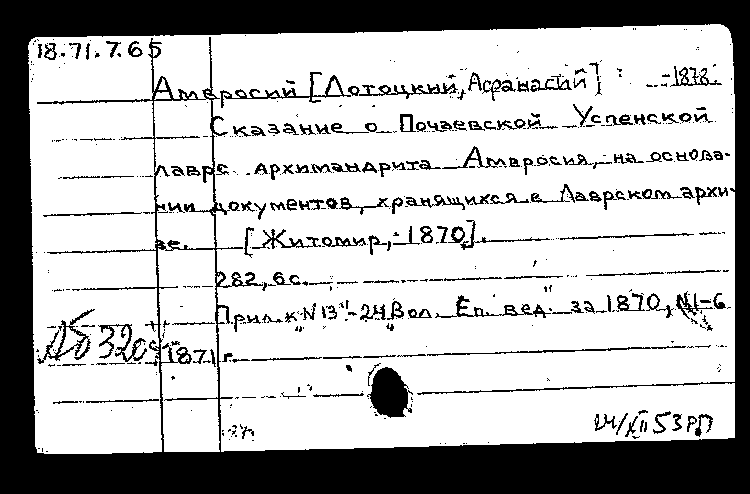 18.71.7.65
Амвросий [Лотоцкий, Афанасий] : -1878.
Сказание о Почаевской Успенской
лавре архимандрита Амвросия, на основа-
нии документов, хранящихся в Лаврском архи-
ве. [Житомир, 1870].
282, 6 с.
Прил. к "N 13"-24 "Вол. Еп. вед." за 1870, N 1-6
1871 г.
Аб 320
53 РП